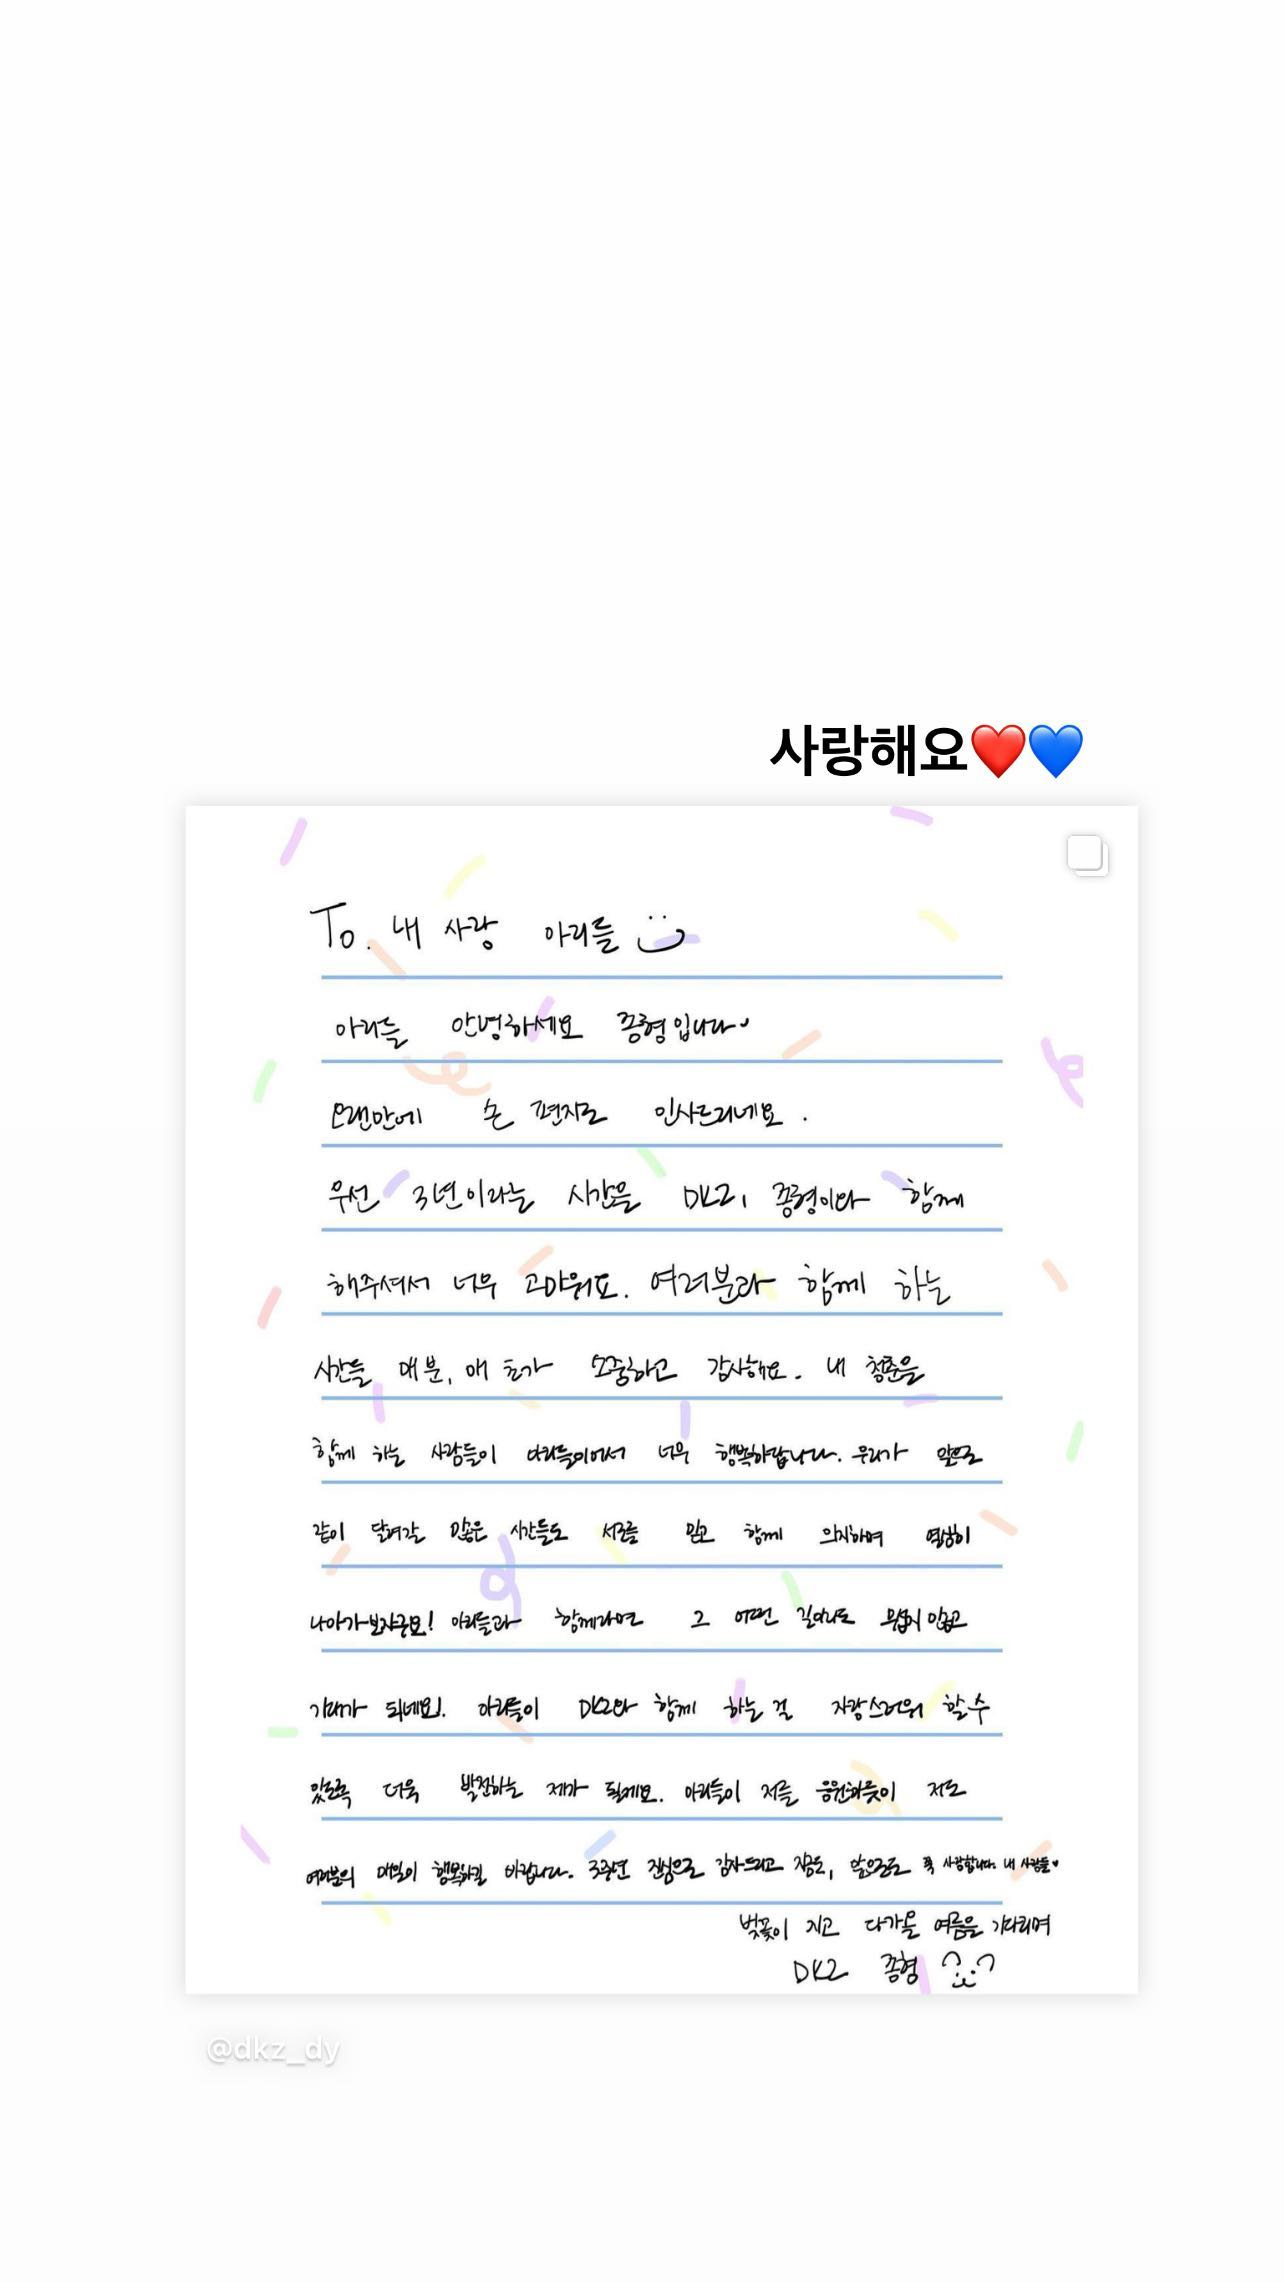 사랑해요❤️💙
To. 내 사랑 아리들
아리들 안녕하세요 종형입니다
오랜만에 손 편지로 인사드리네요.
우선 3년이라는 시간을 DKZ, 종형이와 함께
해주셔서 너무 고마워요. 여러분과 함께 하는
시간들 매 분, 매 초가 소중하고 감사해요. 내 청춘을
함께 하는 사람들이 아리들이어서 너무 행복하답니다. 우리가 앞으로
같이 달려갈 많은 시간들도 서로를 믿고 함께 의지하며 열심히
나아가보자구요! 아리들과 함께라면 그 어떤 길이라도 무섭지 않고
기대가 되네요!. 아리들이 DKZ와 함께 하는 걸 자랑스러워 할 수
있도록 더욱 발전하는 제가 될게요. 아리들이 저를 응원하듯이 저도
여러분의 매일이 행복하길 바랍니다. 3주년 진심으로 감사드리고 지금도, 앞으로도 푹 사랑합니다. 내 사람들♥
벚꽃이 지고 다가올 여름을 기다리며
DKZ 종형
@dkz_dy